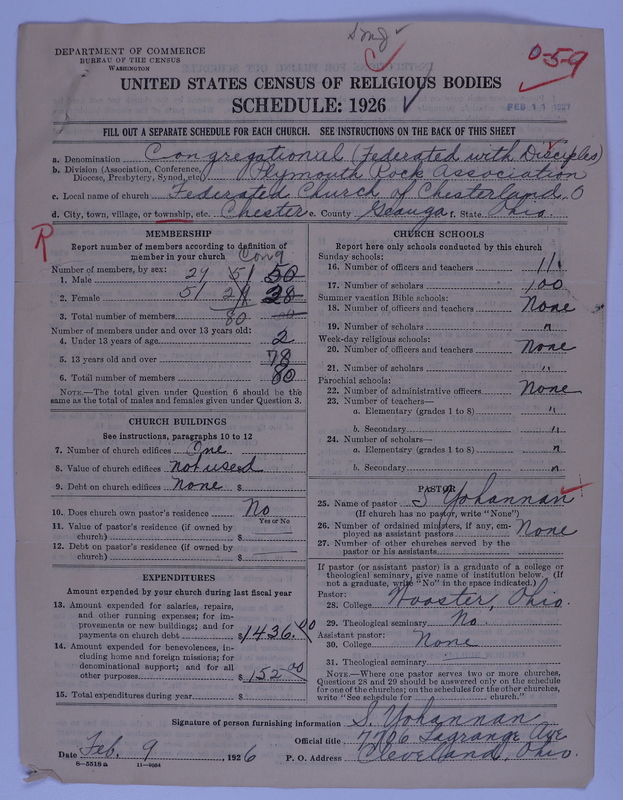 Song ✓
C ✓
0-5-9
DEPARTMENT OF COMMERCE
BUREAU OF THE CENSUS
WASHINGTON
UNITED STATES CENSUS OF RELIGIOUS BODIES
SCHEDULE: 1926
FEB 11 1927
FILL OUT A SEPARATE SCHEDULE FOR EACH CHURCH. SEE INSTRUCTIONS ON THE BACK OF THIS SHEET
a. Denomination Congregational (Federated with Disciples)
b. Division (Association, Conference, Diocese, Presbytery, Synod, etc.) Plymouth Rock Association
c. Local name of church Federated Church of Chesterland, O
d. City, town, village, or township, etc. Chester e. County Geauga f. State Ohio.
R
MEMBERSHIP
Report number of members according to definition of
member in your church Cong
Number of members, by sex:
1. Male 29 51 50
2. Female 51 29 28
3. Total number of members 80
Number of members under and over 13 years old:
4. Under 13 years of age 2
5. 13 years old and over 78
6. Total number of members 80
NOTE.—The total given under Question 6 should be the
same as the total of males and females given under Question 3.
CHURCH BUILDINGS
See instructions, paragraphs 10 to 12
7. Number of church edifices One
8. Value of church edifices not used
9. Debt on church edifices None $
10. Does church own pastor's residence No
Yes or No
11. Value of pastor's residence (if owned by
church) $
12. Debt on pastor's residence (if owned by
church) $
EXPENDITURES
Amount expended by your church during last fiscal year
13. Amount expended for salaries, repairs,
and other running expenses; for im-
provements or new buildings; and for
payments on church debt $1436.00
14. Amount expended for benevolences, in-
cluding home and foreign missions; for
denominational support; and for all
other purposes $152.00
15. Total expenditures during year $
CHURCH SCHOOLS
Report here only schools conducted by this church
Sunday schools:
16. Number of officers and teachers 11
17. Number of scholars 100
Summer vacation Bible schools:
18. Number of officers and teachers None
19. Number of scholars "
Week-day religious schools:
20. Number of officers and teachers None
21. Number of scholars "
Parochial schools:
22. Number of administrative officers None
23. Number of teachers—
a. Elementary (grades 1 to 8) "
b. Secondary "
24. Number of scholars—
a. Elementary (grades 1 to 8) "
b. Secondary "
PASTOR
25. Name of pastor S Yohannan
(If church has no pastor, write "None")
26. Number of ordained ministers, if any, em-
ployed as assistant pastors None
27. Number of other churches served by the
pastor or his assistants
If pastor (or assistant pastor) is a graduate of a college or
theological seminary, give name of institution below. (If
not a graduate, write "No" in the space indicated.)
Pastor:
28. College Wooster, Ohio.
29. Theological seminary No.
Assistant pastor:
30. College None
31. Theological seminary
NOTE.—Where one pastor serves two or more churches,
Questions 28 and 29 should be answered only on the schedule
for one of the churches; on the schedules for the other churches,
write "See schedule for church."
Signature of person furnishing information S. Yohannan
Official title 7706 Lagrange Ave
Date Feb. 9, 1926 P. O. Address Cleveland, Ohio.
8-5518a 11-9084